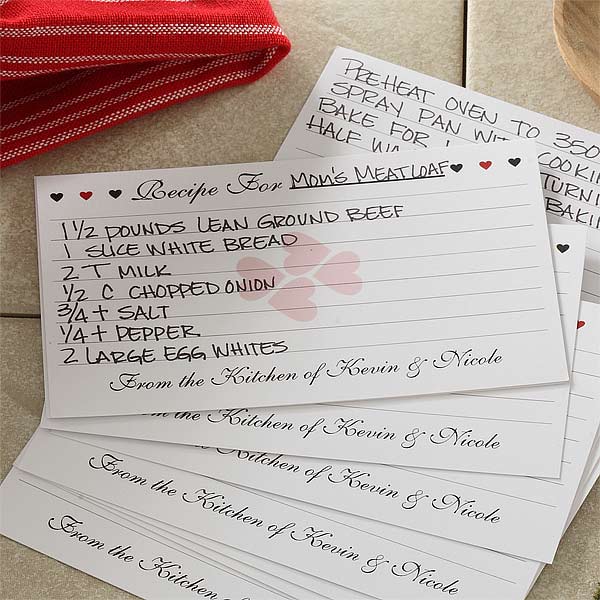 PREHEAT OVEN TO 350
SPRAY PAN WITH COOKIN
BAKE FOR
HALF TURNI
BAKIN
Recipe For MOM'S MEATLOAF
1 1/2 POUNDS LEAN GROUND BEEF
1 SLICE WHITE BREAD
2 T MILK
1/2 C CHOPPED ONION
3/4 t SALT
1/4 t PEPPER
2 LARGE EGG WHITES
From the Kitchen of Kevin & Nicole
From the Kitchen of Kevin & Nicole
From the Kitchen of Kevin & Nicole
From the Kitchen of Kevin & Nicole
From the Kitchen of Kevin & Nicole